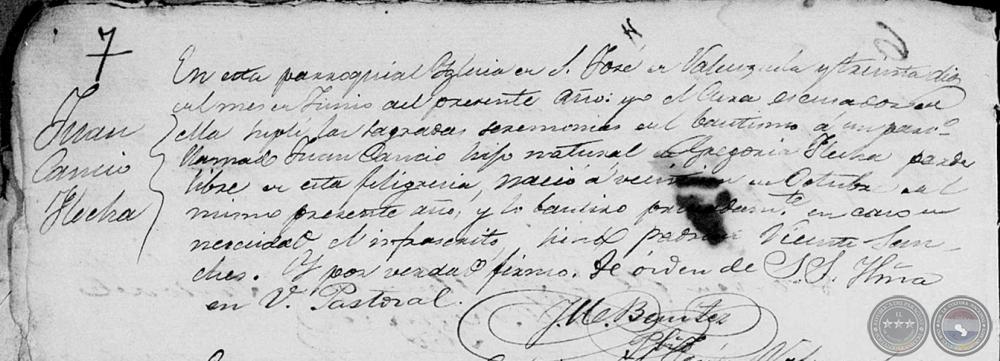 7
Juan
Cancio
Flecha
En esta parroquial Iglecia de S. José de Valenzuela y treinta dias
del mes de Junio del presente año: yo el Cura escusador de
ella suplí las sagradas seremonias del bautismo a un parvo
llamado Juan Cancio hijo natural de Gregoria Flecha parda
libre de esta feligrecia, nació a de Octubre del
mismo presente año, y lo bautizo en caso de
necesidad, el infrascrito, siendo padrino Vicente San-
ches. Y por verdad firmo. De órden de S.S. Iltma
en V. Pastoral.
J. M. Benitez